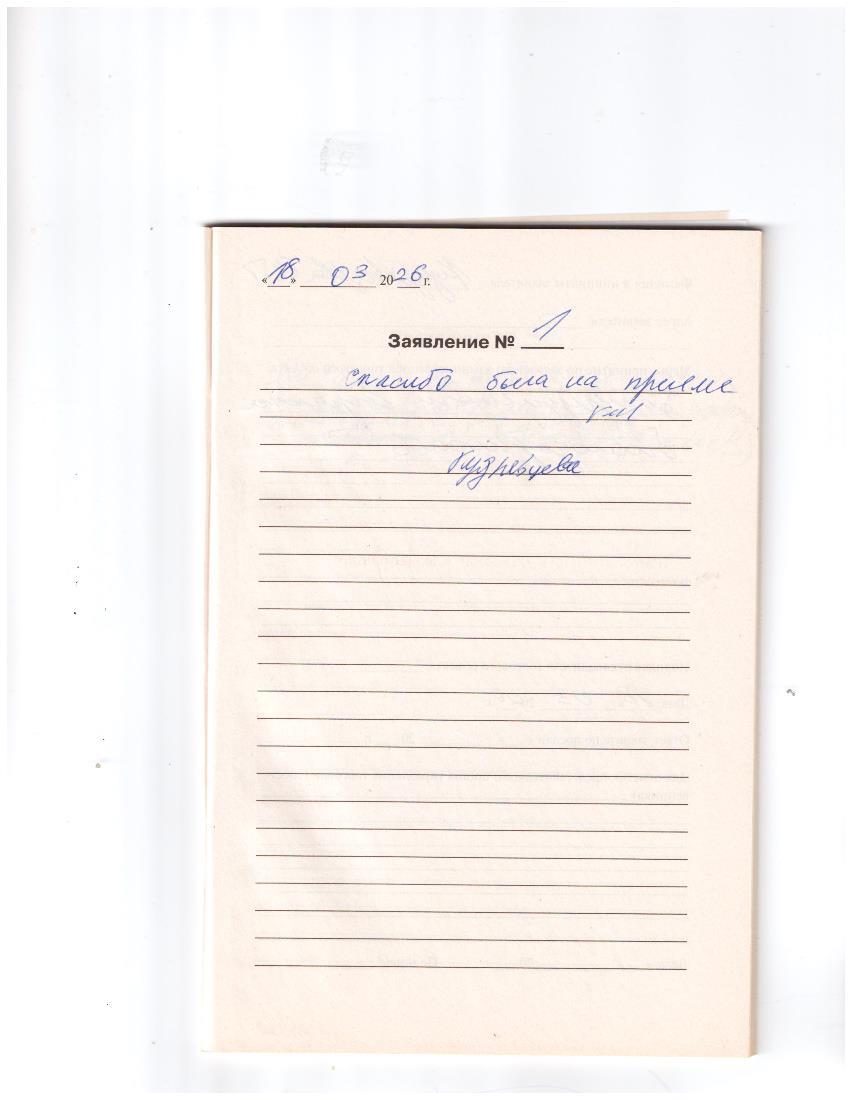 «18» 03 2026 г.
Заявление № 1
спасибо была на приеме
Кудревцева